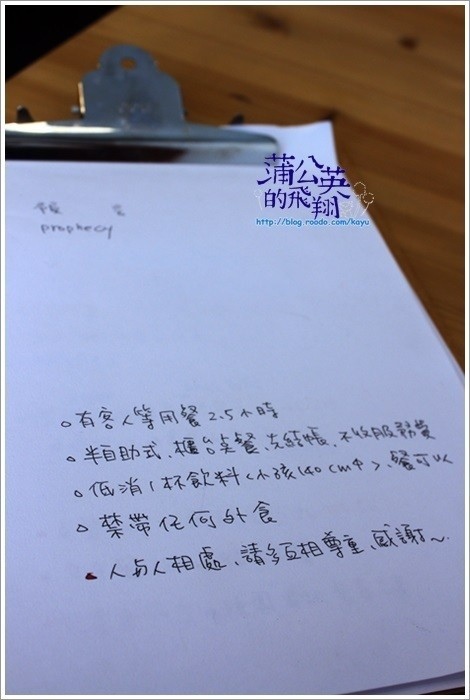 蒲公英
的飛翔
http://blog.roodo.com/kayu
預 言
prophecy
有客人等用餐2.5小時
半自助式、櫃台桌餐、先結帳、不收服務費
低消1杯飲料<小孩140cm↑>、餐可以
禁帶任何外食
人与人相處、請多互相尊重、感謝~